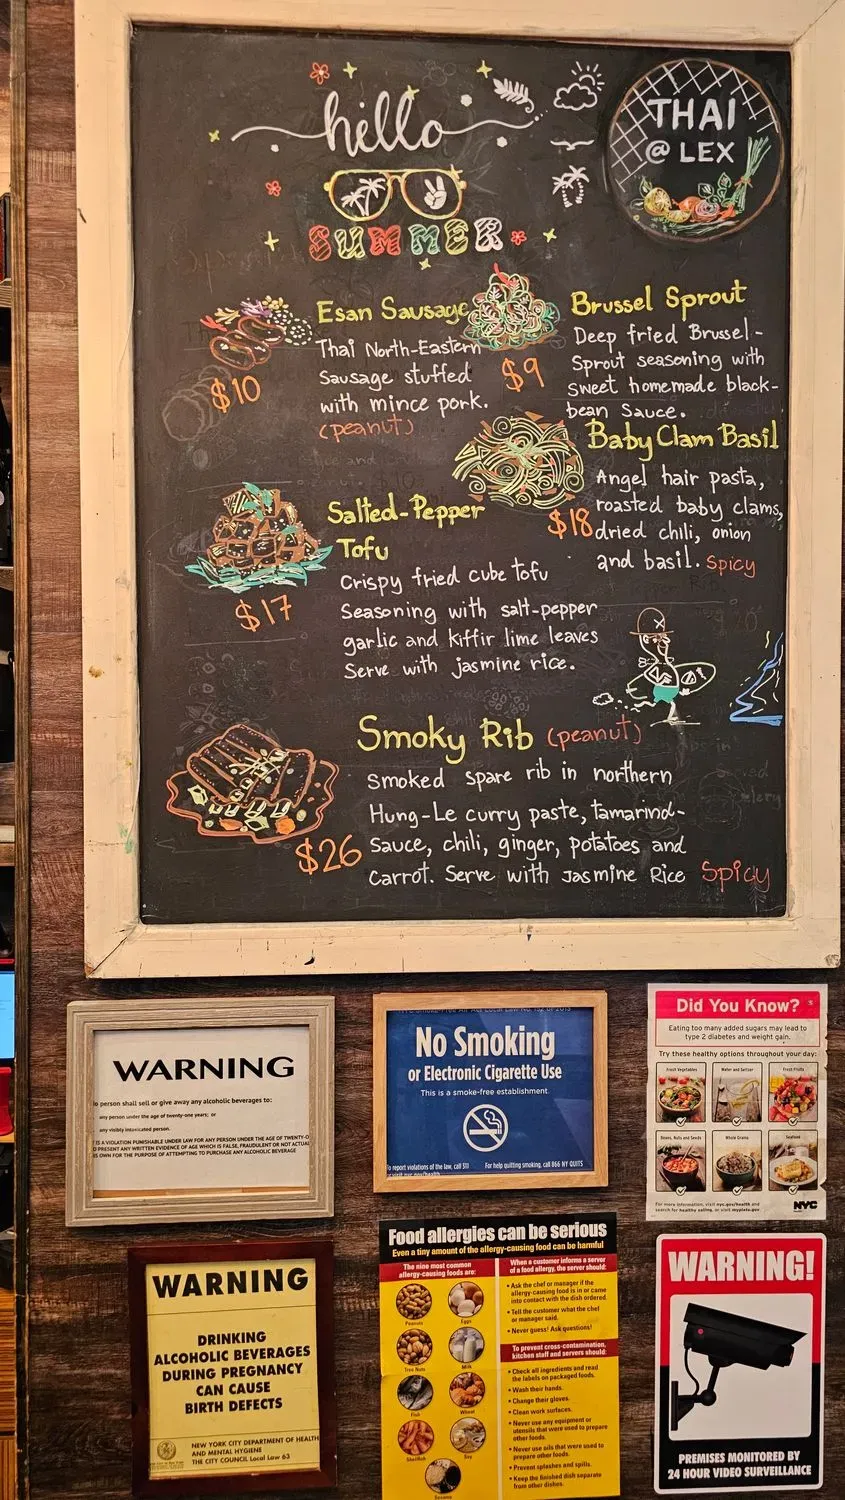 hello
SUMMER
THAI
@ LEX
Esan Sausage
Thai North-Eastern
Sausage stuffed
with mince pork.
(peanut)
$10
Brussel Sprout
Deep fried Brussel-
Sprout seasoning with
sweet homemade black-
bean Sauce.
$9
Baby Clam Basil
Angel hair pasta,
roasted baby clams,
dried chili, onion
and basil. Spicy
$18
Salted-Pepper
Tofu
Crispy fried cube tofu
Seasoning with salt-pepper
garlic and Kiffir lime leaves
Serve with jasmine rice.
$17
Smoky Rib (peanut)
Smoked spare rib in northern
Hung-Le curry paste, tamarind-
Sauce, chili, ginger, potatoes and
carrot. Serve with Jasmine Rice Spicy
$26
WARNING
o person shall sell or give away any alcoholic beverages to:
any person under the age of twenty-one years; or
any visibly intoxicated person.
IS A VIOLATION PUNISHABLE UNDER LAW FOR ANY PERSON UNDER THE AGE OF TWENTY-O
O PRESENT ANY WRITTEN EVIDENCE OF AGE WHICH IS FALSE, FRAUDULENT OR NOT ACTUAL
S OWN FOR THE PURPOSE OF ATTEMPTING TO PURCHASE ANY ALCOHOLIC BEVERAGE
No Smoking
or Electronic Cigarette Use
This is a smoke-free establishment.
To report violations of the law, call 311
For help quitting smoking, call 866 NY QUITS
Did You Know?
Eating too many added sugars may lead to
type 2 diabetes and weight gain.
Try these healthy options throughout your day:
Fresh Vegetables
Water and Seltzer
Fresh Fruits
Beans, Nuts and Seeds
Whole Grains
Seafood
For more information, visit nyc.gov/health and
search for healthy eating, or visit myplate.gov
NYC
WARNING
DRINKING
ALCOHOLIC BEVERAGES
DURING PREGNANCY
CAN CAUSE
BIRTH DEFECTS
NEW YORK CITY DEPARTMENT OF HEALTH
AND MENTAL HYGIENE
THE CITY COUNCIL Local Law 63
Food allergies can be serious
Even a tiny amount of the allergy-causing food can be harmful
The nine most common
allergy-causing foods are:
Peanuts
Eggs
Tree Nuts
Milk
Fish
Wheat
Shellfish
Soy
Sesame
When a customer informs a server
of a food allergy, the server should:
• Ask the chef or manager if the
allergy-causing food is in or came
into contact with the dish ordered.
• Tell the customer what the chef
or manager said.
• Never guess! Ask questions!
To prevent cross-contamination,
kitchen staff and servers should:
• Check all ingredients and read
the labels on packaged foods.
• Wash their hands.
• Change their gloves.
• Clean work surfaces.
• Never use any equipment or
utensils that were used to prepare
other foods.
• Never use oils that were used to
prepare other foods.
• Prevent splashes and spills.
• Keep the finished dish separate
from other dishes.
WARNING!
PREMISES MONITORED BY
24 HOUR VIDEO SURVEILLANCE